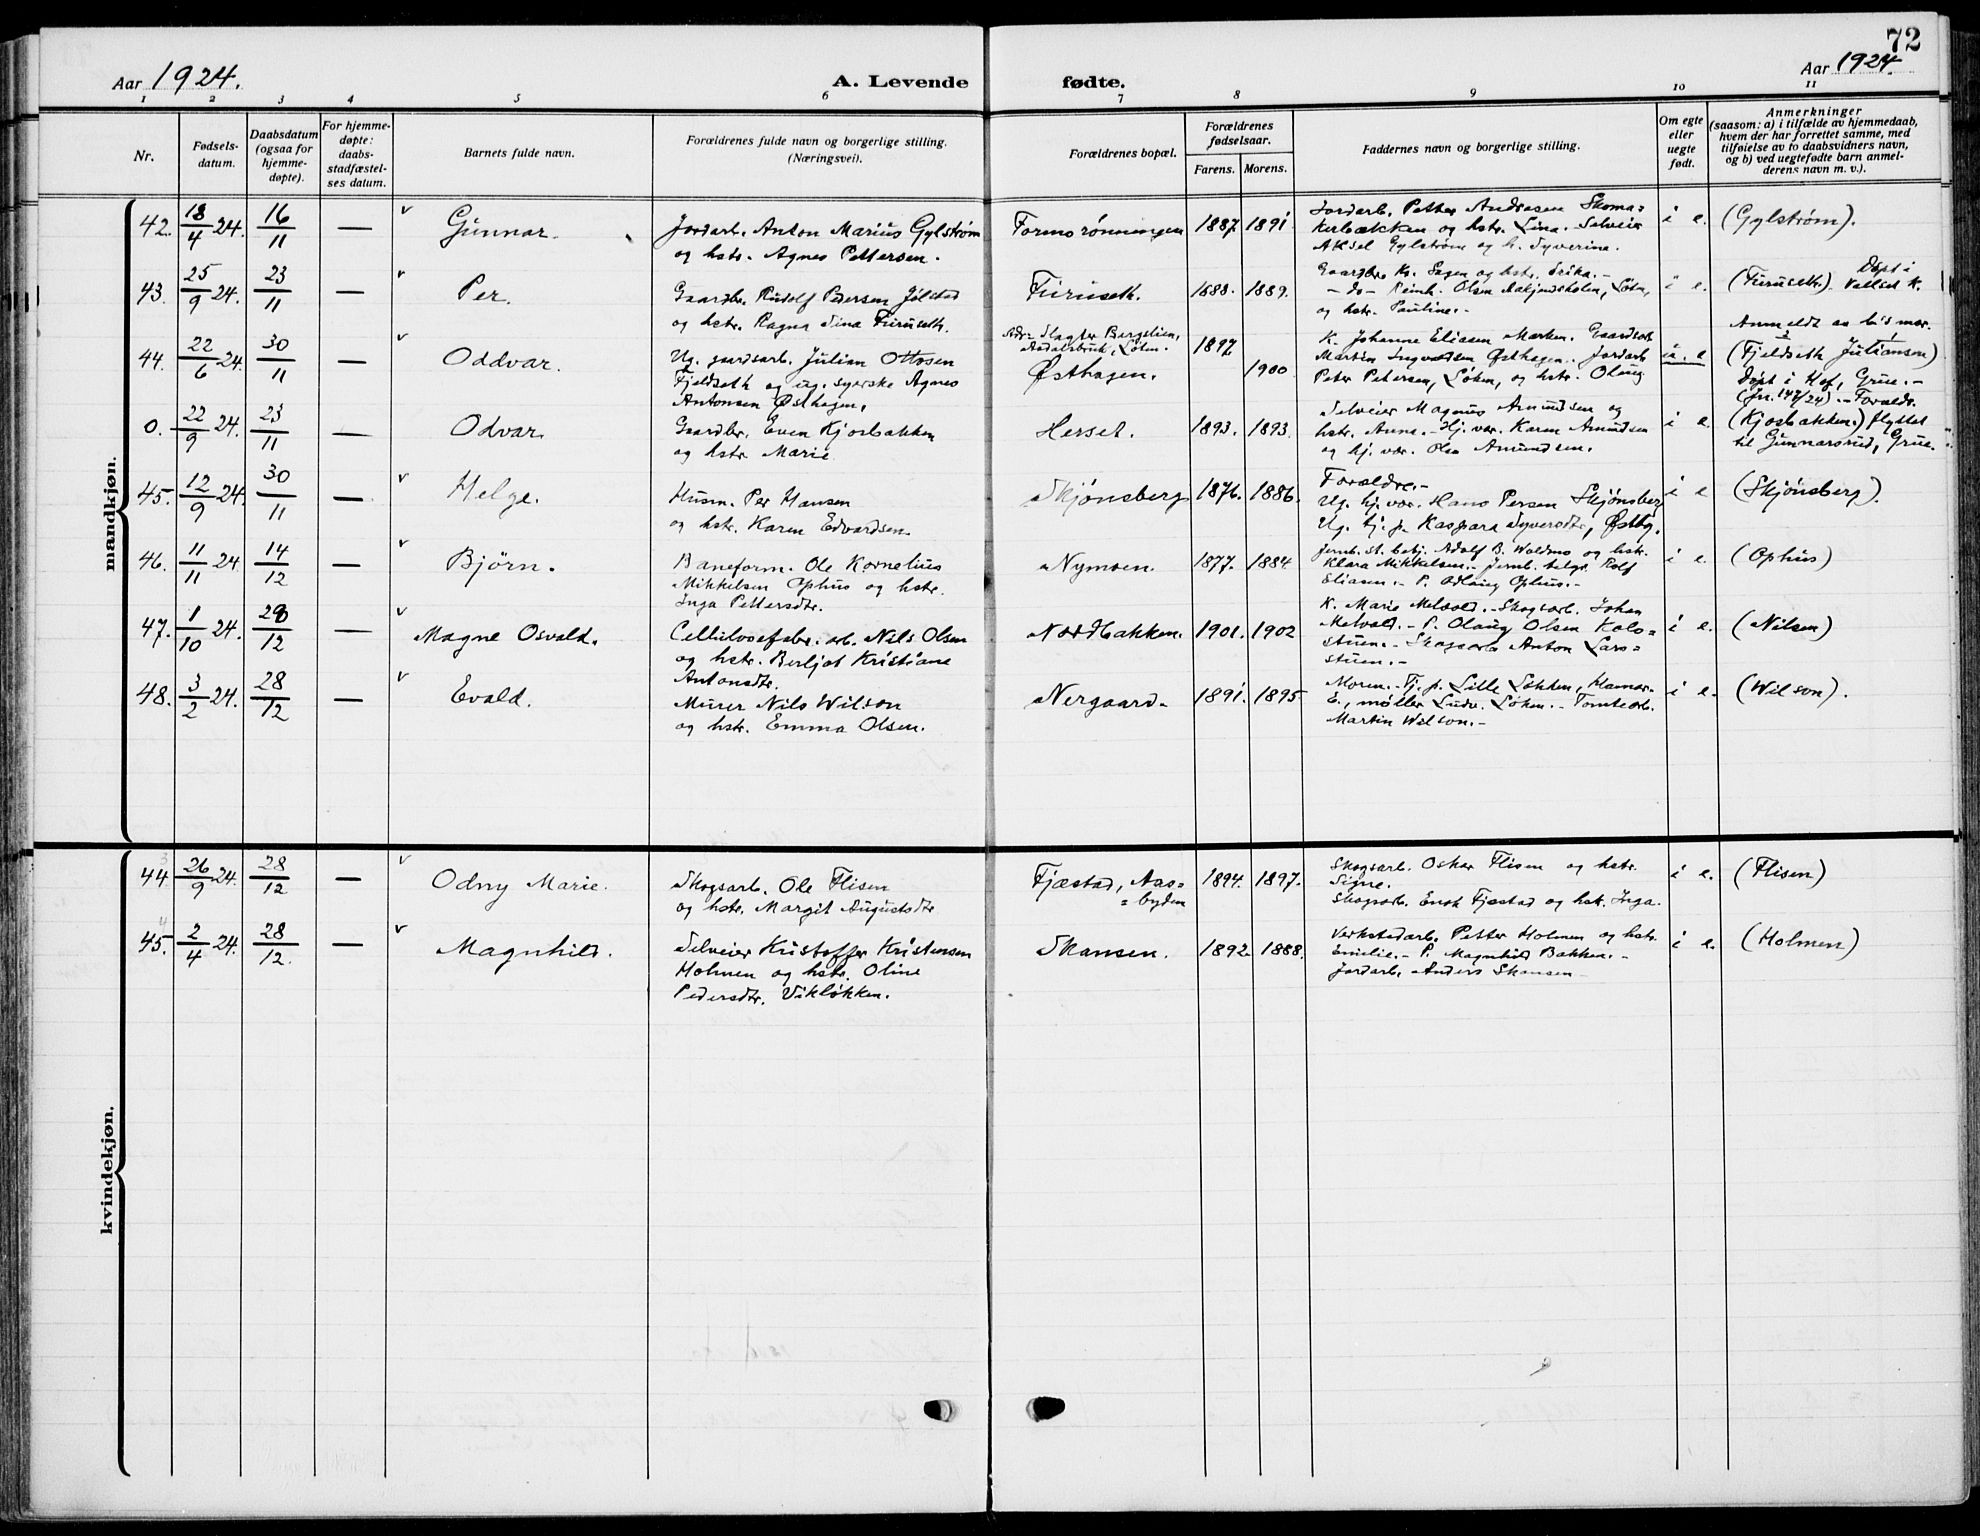 72
Aar 1924.
A. Levende fødte.
Aar 1924.
1 2 3 4 5 6 7 8 9 10 11
Nr.
Fødsels-
datum.
Daabsdatum
(ogsaa for
hjemme-
døpte).
For hjemme-
døpte:
daabs-
stadfæstel-
ses datum.
Barnets fulde navn.
Forældrenes fulde navn og borgerlige stilling.
(Næringsvei).
Forældrenes bopæl.
Forældrenes
fødselsaar.
Farens. Morens.
Faddernes navn og borgerlige stilling.
Om egte
eller
uegte
født.
Anmerkninger
(saasom: a) i tilfælde av hjemmedaab,
hvem der har forrettet samme, med
tilføielse av to daabsvidners navn,
og b) ved uegtefødte barn anmel-
derens navn m. v.).
mandkjøn.
42. 13/4 24. 16/11 — Gunnar.
Jordarb. Anton Marius Gylstrøm
og hstr. Agnes Pettersen.
Formorønningen 1887. 1891.
Jordarb. Petter Andrasen Skoma=
kerbækken og hstr. Lina. Selveier
Aksel Gylstrøm og h. Syverina.
i e. (Gylstrøm).
43. 25/9 24. 23/11 — Per.
Gaardbr. Rudolf Pedersen Jølstad
og hstr. Ragna Sina Furuseth.
Furuseth. 1888. 1889.
Gaardbr. Kr. Sagen og hstr. Erika.-
-do- Reinh. Olsen, Løten,
og hstr. Pauline.-
i e. (Furuseth). Døpt i
Vallset K.
44. 22/6 24. 30/11 — Oddvar.
Ug. gaardsarb. Julian Ottosen
Fjeldseth og ug. syerske Agnes
Antonsen Østhagen.
Slagter Bergelien,
Aadalsbruk, Løten. 1897
Østhagen. 1900
K. Johanne Eliasen Marken. Gaardsarb
Martin Ingvaldsen Østhagen. Jordarb
Peter Petersen, Løken, og hstr. Olaug
u. e
Anmeldt av b's mor.
(Fjeldseth Juliansen)
Døpt i Hof, Grue.-
(Jr. 147/24).- Forældr.
0. 22/9 24. 23/11 — Odvar.
Gaardbr. Even Kjosbakken
og hstr. Marie
Herset. 1893. 1893.
Selveier Magnus Amundsen og
hstr. Anna.- Hj. vær. Karen Amundsen
og hj. vær. Ola Amundsen.
i e. (Kjosbakken.) flyttet
til Gunnarsrud, Grue.
45. 12/9 24. 30/11 — Helge.
Husm. Per Hansen
og hstr. Karen Edvardsen
Skjønsberg 1876. 1886.
Forældre.-
Ug. hj. vær. Hans Persen Skjønsberg
Ug. tj. p. Kaspara Syversdtr, Østby.
i e (Skjønsberg).
46. 11/11 24. 14/12 — Bjørn.
Baneform. Ole Kornelius
Mikkelsen Ophus og hstr.
Inga Pettersdtr.
Nymoen. 1877. 1884.
Jernb. st. betj. Adolf B. Woldmo og hstr.
Klara Mikkelsen.- Jernb. telgr. Rolf
Eliasen.- P. Odlaug Ophus.-
i e. (Ophus)
47. 1/10 24. 20/12 — Magne Osvald.
Cellulosefabr. arb. Nils Olsen
og hstr. Berljot Kristiane
Antonsdtr.
Nordbakken. 1901. 1902
K. Marie Melvold.- Skogsarb. Johan
Melvold.- P. Olaug Olsen Kolo=
stuen.- Skogsarb Anton Lars=
stuen.-
i e. (Nilsen)
48. 3/2 24. 28/12 — Evald.
Murer Nils Wilson
og hstr. Emma Olsen.
Nergaard. 1891. 1895
Moren.- Tj. p. Lille Løkken,
E., møller Ludv. Løken.- Tomtearb.
Martin Wilson.-
i e. (Wilson).
kvindekjøn.
44 26/9 24. 28/12 — Odny Marie.
Skogsarb. Ole Flisen
og hstr. Margit Augustsdtr
Fjæstad, Aas=
=byden 1894. 1897.
Skogsarb. Oskar Flisen og hstr.
Signe.
Skogsarb. Enok Fjæstad og hstr. Inga.
i e. (Flisen)
45. 2/4 24. 28/12. — Magnhild.
Selveier Kristoffer Kristensen
Holmen og hstr. Oline
Pedersdtr. Vikløkken.
Skansen. 1892 1888.
Verkstedarb. Petter Holmen og hstr.
Emilie.- P. Magnhild Bakken.-
Jordarb. Anders Skansen-
i e. (Holmen)